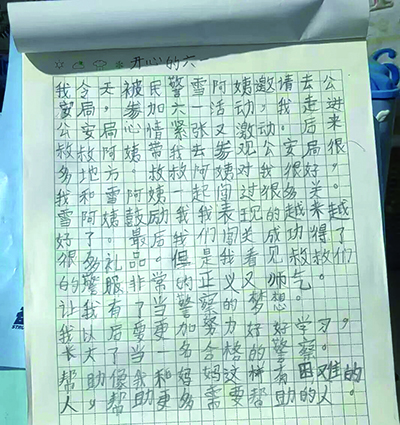 开心的六一
我今天被民警雪阿姨邀请去公
安局，参加六一活动，我走进
公安局心情紧张又激动。后来
叔叔阿姨带我去参观公安局很
多地方。叔叔阿姨对我很好，
我和雪阿姨一起闯过很多关。
雪阿姨鼓励我我表现的越来越
好了。最后我们闯关成功得了
很多礼品。但是我看见叔叔们
的警服非常的正义又帅气。
让我有了当警察的梦想。
我以后要更加努力好好学习，
长大了当一名合格的警察。
帮助像我和妈妈这样有困难的
人，帮助更多需要帮助的人。